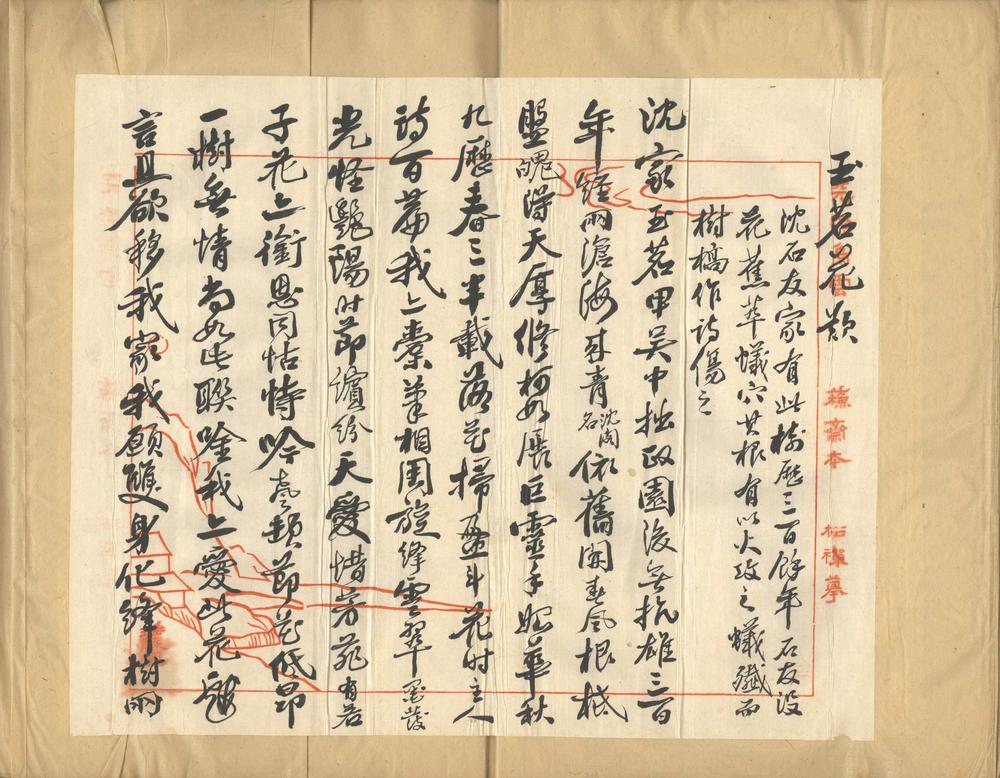 玉茗花歎
沈石友家有此樹歷三百餘年石友沒
花蕉萃蟻穴其根有以火攻之蟻殲而
樹槁作詩傷之
沈家玉茗甲吳中拙政園後無抗雄三百
年經兩滄海月青沈閣名依舊開春風根柢
盤魄得天厚修柯如展巨靈手妍華秋
九歷春三半載落花掃盈斗花時主人
詩百篇我亦橐筆相周旋絳雲翠墨發
光怪艷陽時節繽紛天愛惜芳菲有若
子花亦銜恩同怙恃吟聲頓節花低昂
一樹無情尚如此聯唫我亦愛此花
言且欲移我家我願雙身化絳樹兩
蘇齋本
松禪摹